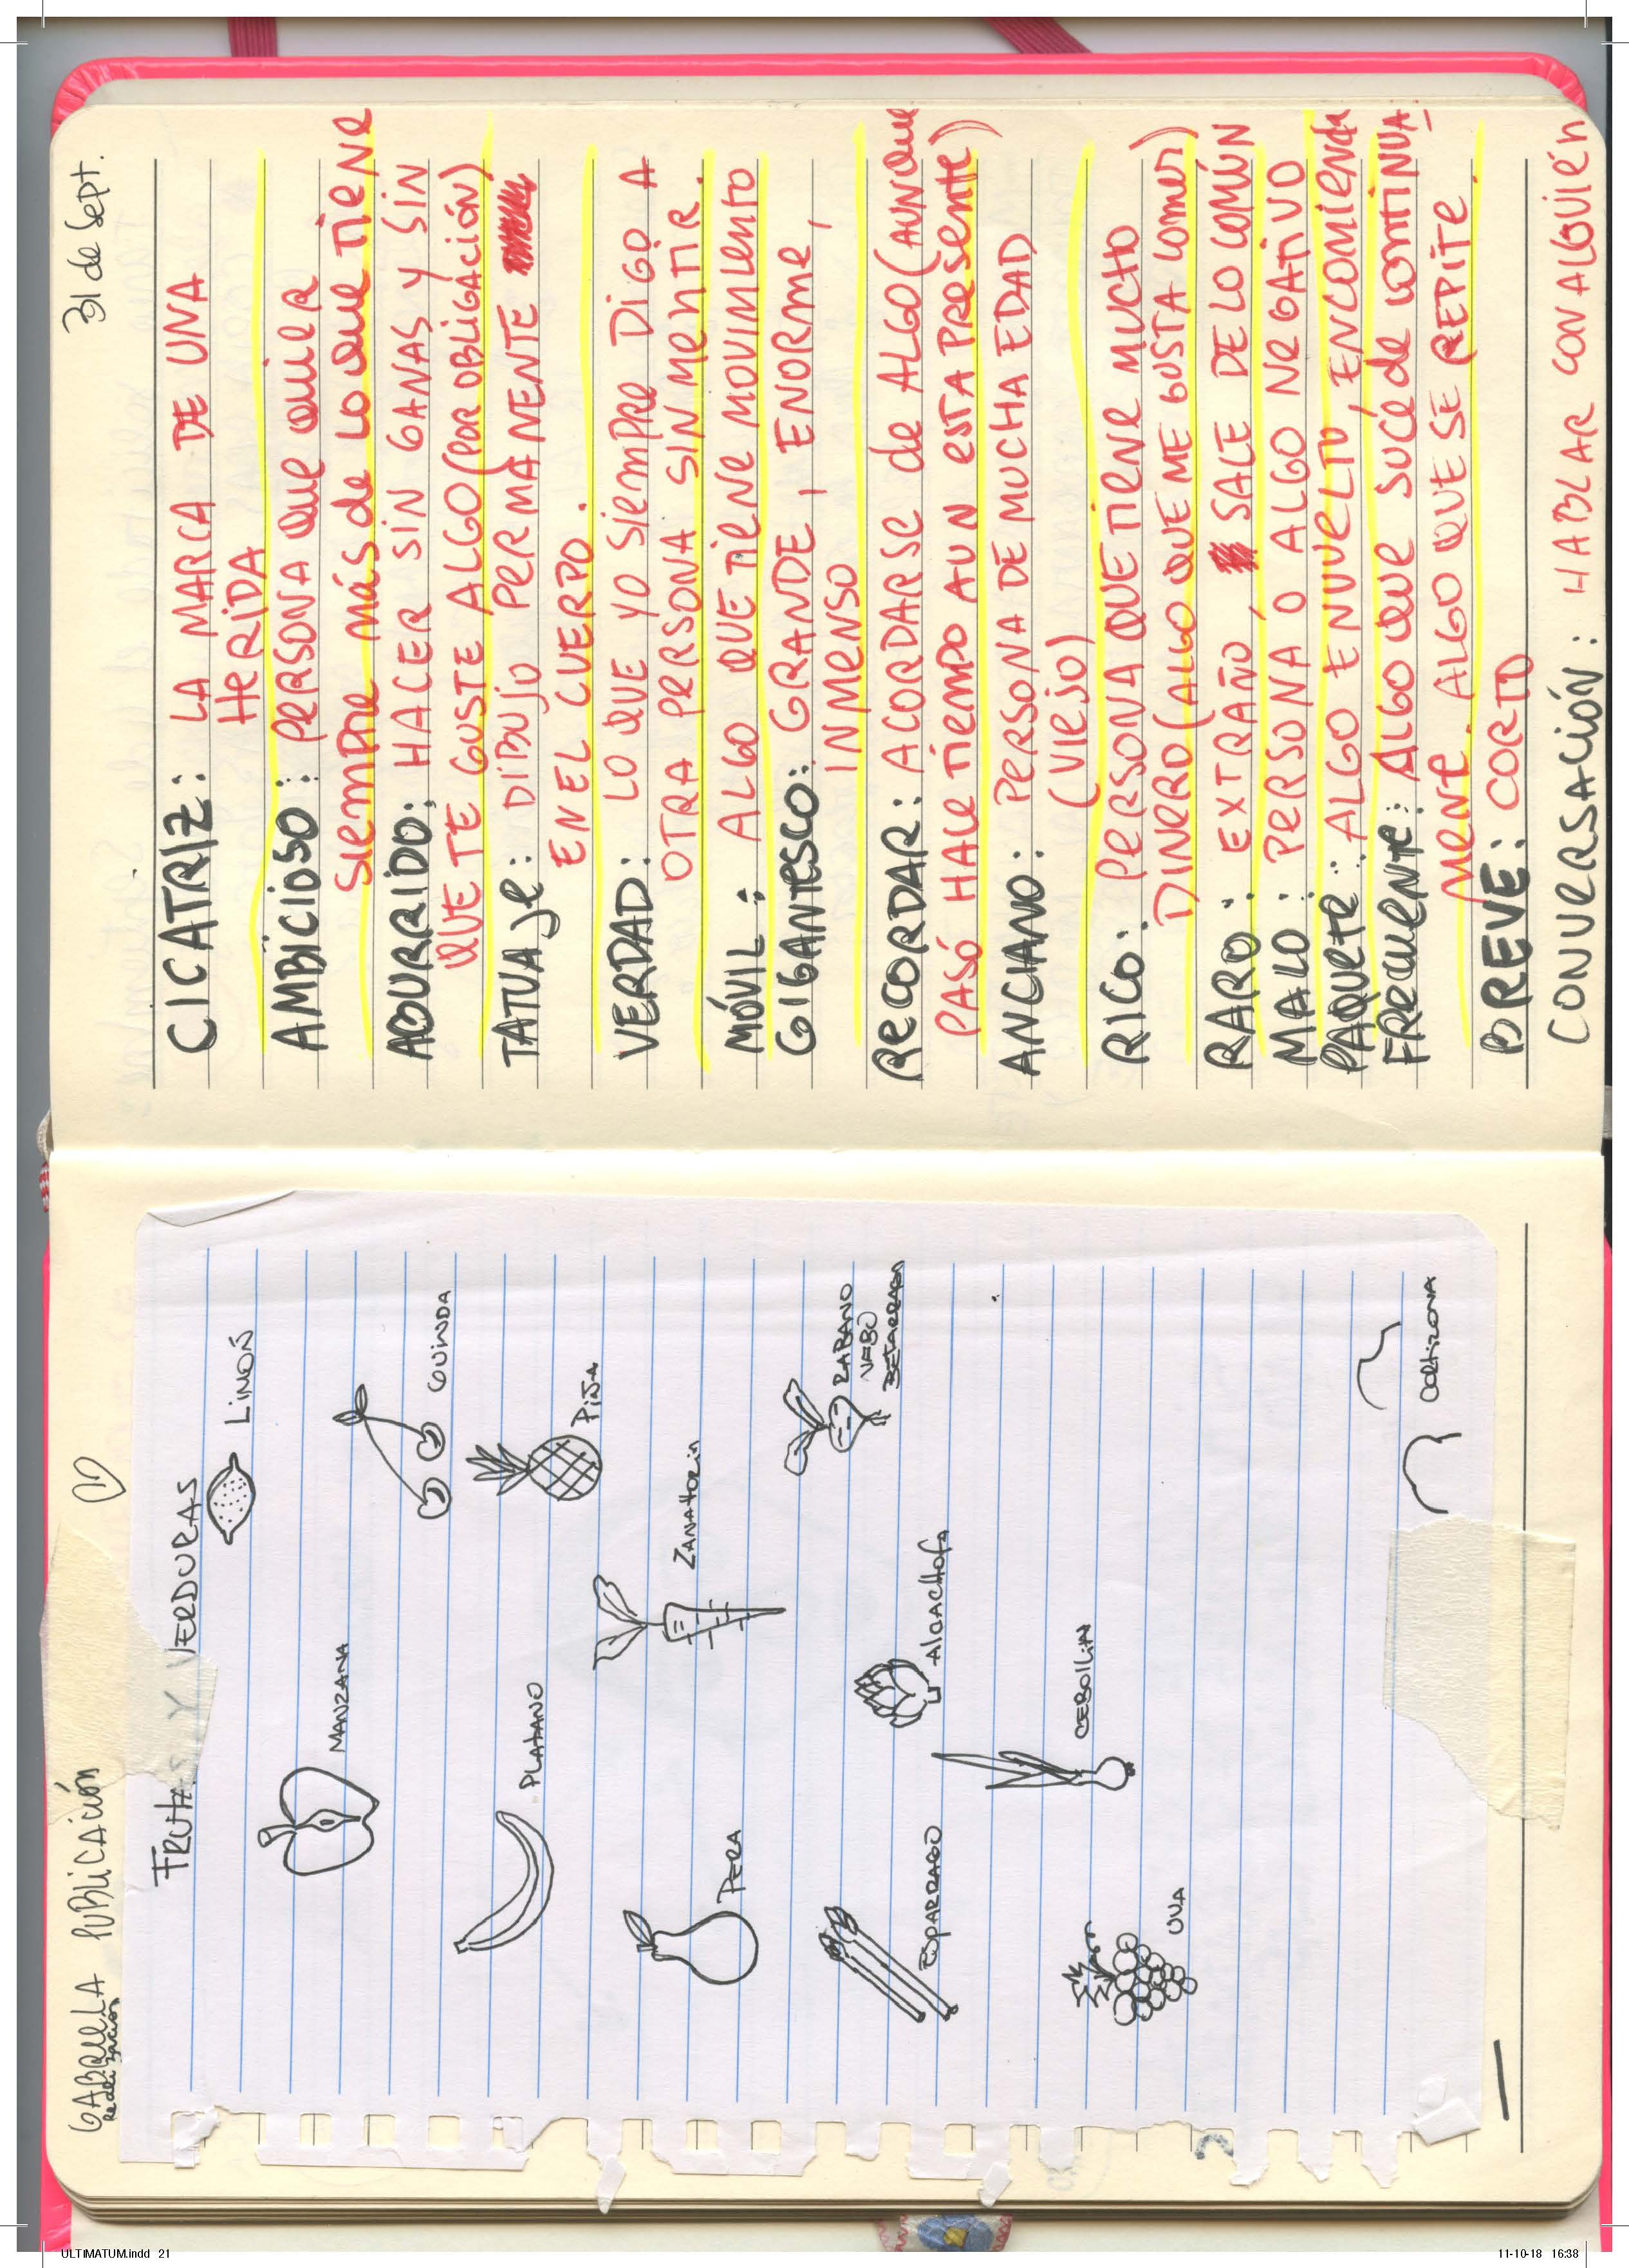 GABRIELA PUBLICACIÓN
Realización
FRUTAS Y VERDURAS
LIMÓN
MANZANA
GUINDA
PLATANO
PIÑA
PERA
ZANAHORIA
RABANO
NABO
BETARRAGA
ESPARRAGO
ALCACHOFA
CEBOLLIN
UVA
31 de Sept.
CICATRIZ: LA MARCA DE UNA
HERIDA
AMBICIOSO: PERSONA QUE QUIER
SIEMPRE más de LO QUE TIENE
ABURRIDO: HACER SIN GANAS Y SIN
QUE TE GUSTE ALGO (POR OBLIGACIÓN)
TATUAJE: DIBUJO PERMANENTE
EN EL CUERPO.
VERDAD: LO QUE YO SIEMPRE DIGO A
OTRA PERSONA SIN MENTIR.
MÓVIL: ALGO QUE TIENE MOVIMIENTO
GIGANTESCO: GRANDE, ENORME,
INMENSO
RECORDAR: ACORDARSE de ALGO (AUNQUE
PASÓ HACE TIEMPO AUN ESTA PRESENTE)
ANCIANO: PERSONA DE MUCHA EDAD
(VIEJO)
RICO: PERSONA QUE TIENE MUCHO
DINERO (ALGO QUE ME GUSTA COMER)
RARO: EXTRAÑO, SALE DE LO COMÚN
MALO: PERSONA O ALGO NEGATIVO
PAQUETE: ALGO ENVUELTO, ENCOMIENDA
FRECUENTE: ALGO QUE SUCEDE CONTINUA-
MENTE. ALGO QUE SE REPITE.
BREVE: CORTO
CONVERSACIÓN: HABLAR CON ALGUIÉN
ULTIMATUM.indd 21
11-10-18 16:38